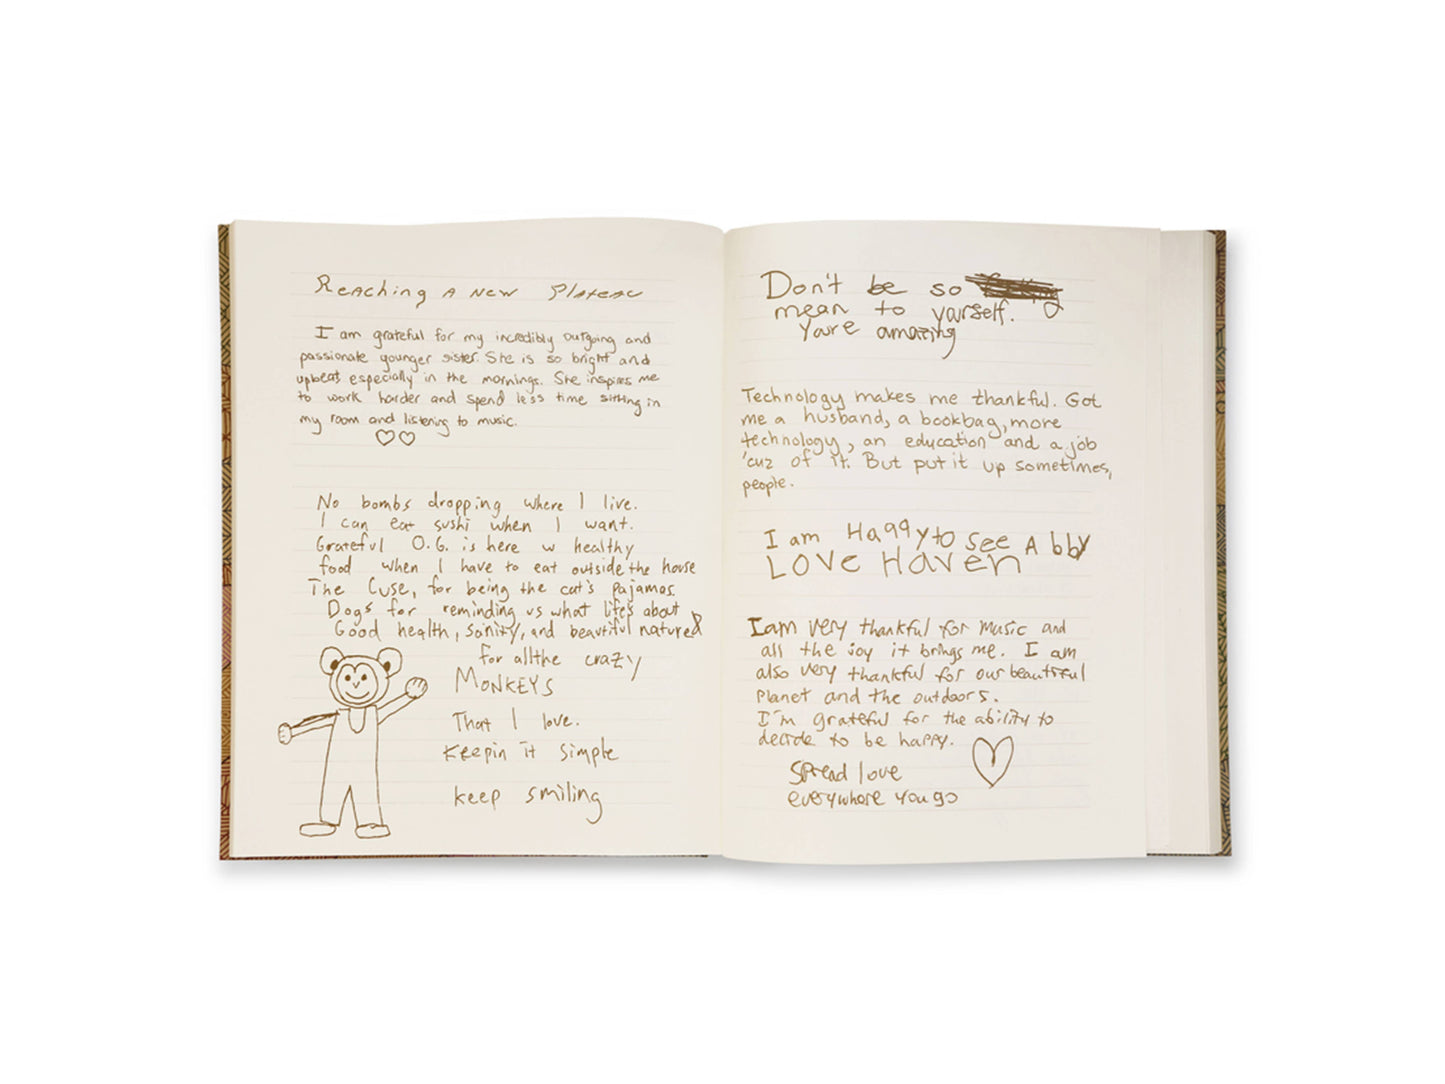 Reaching A New Plateau
I am grateful for my incredibly outgoing and
passionate younger sister. She is so bright and
upbeat especially in the mornings. She inspires me
to work harder and spend less time sitting in
my room and listening to music.
No bombs dropping where I live.
I can eat sushi when I want.
Grateful O.G. is here w healthy
food when I have to eat outside the house
The Cuse, for being the cat's pajamas.
Dogs for reminding us what life's about
Good health, sanity, and beautiful nature
for all the crazy
MONKEYS
That I love.
Keepin it simple
keep smiling
Don't be so
mean to yourself.
You're amazing
Technology makes me thankful. Got
me a husband, a bookbag, more
technology, an education and a job
'cuz of it. But put it up sometimes,
people.
I am Happy to see Abby
LOVE Haven
I am very thankful for music and
all the joy it brings me. I am
also very thankful for our beautiful
Planet and the outdoors.
I'm grateful for the ability to
decide to be happy.
Spread love
everywhere you go